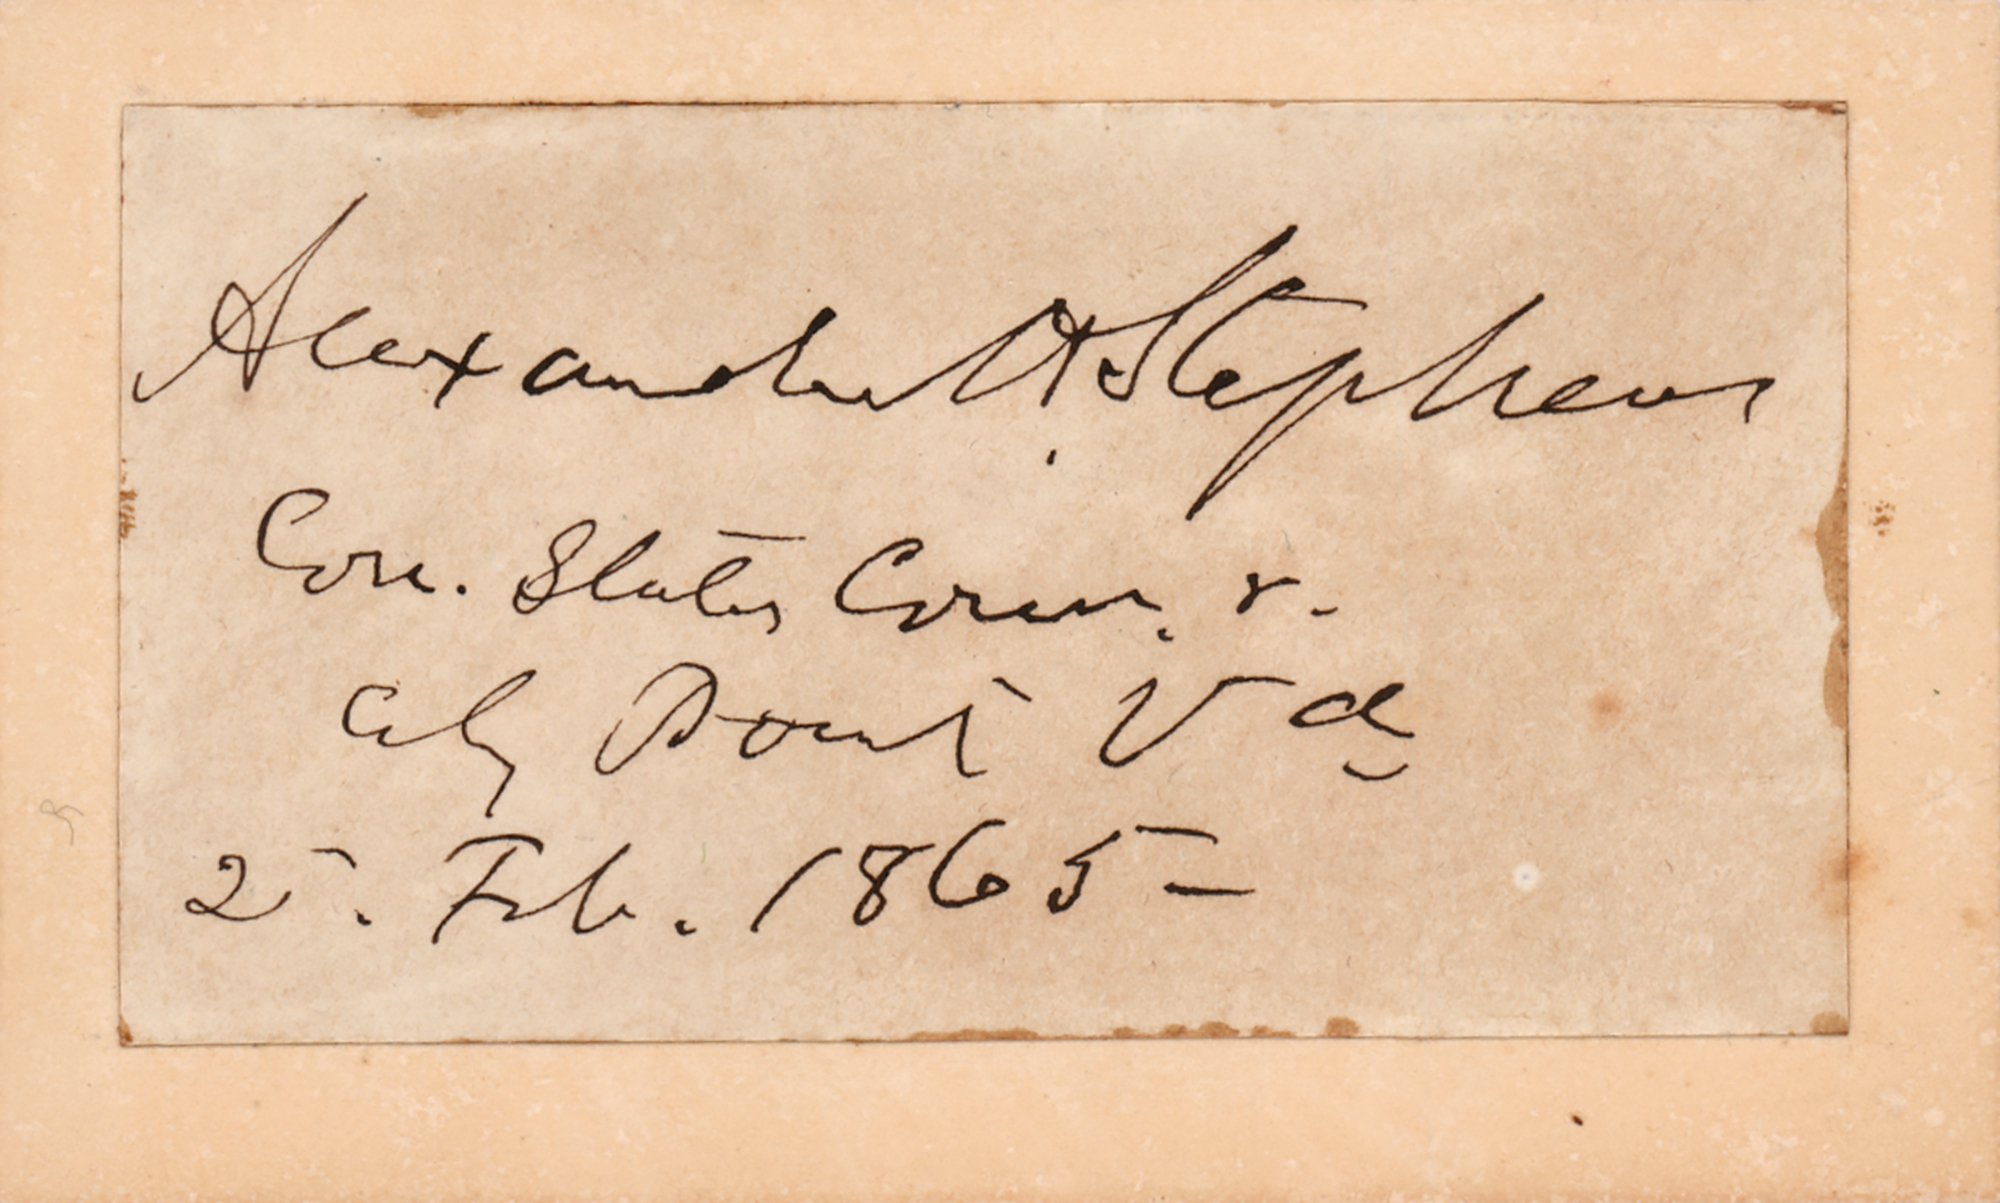 Alexander H. Stephens
Con. States Comr. &.
City Point Va
2. Feb. 1865-